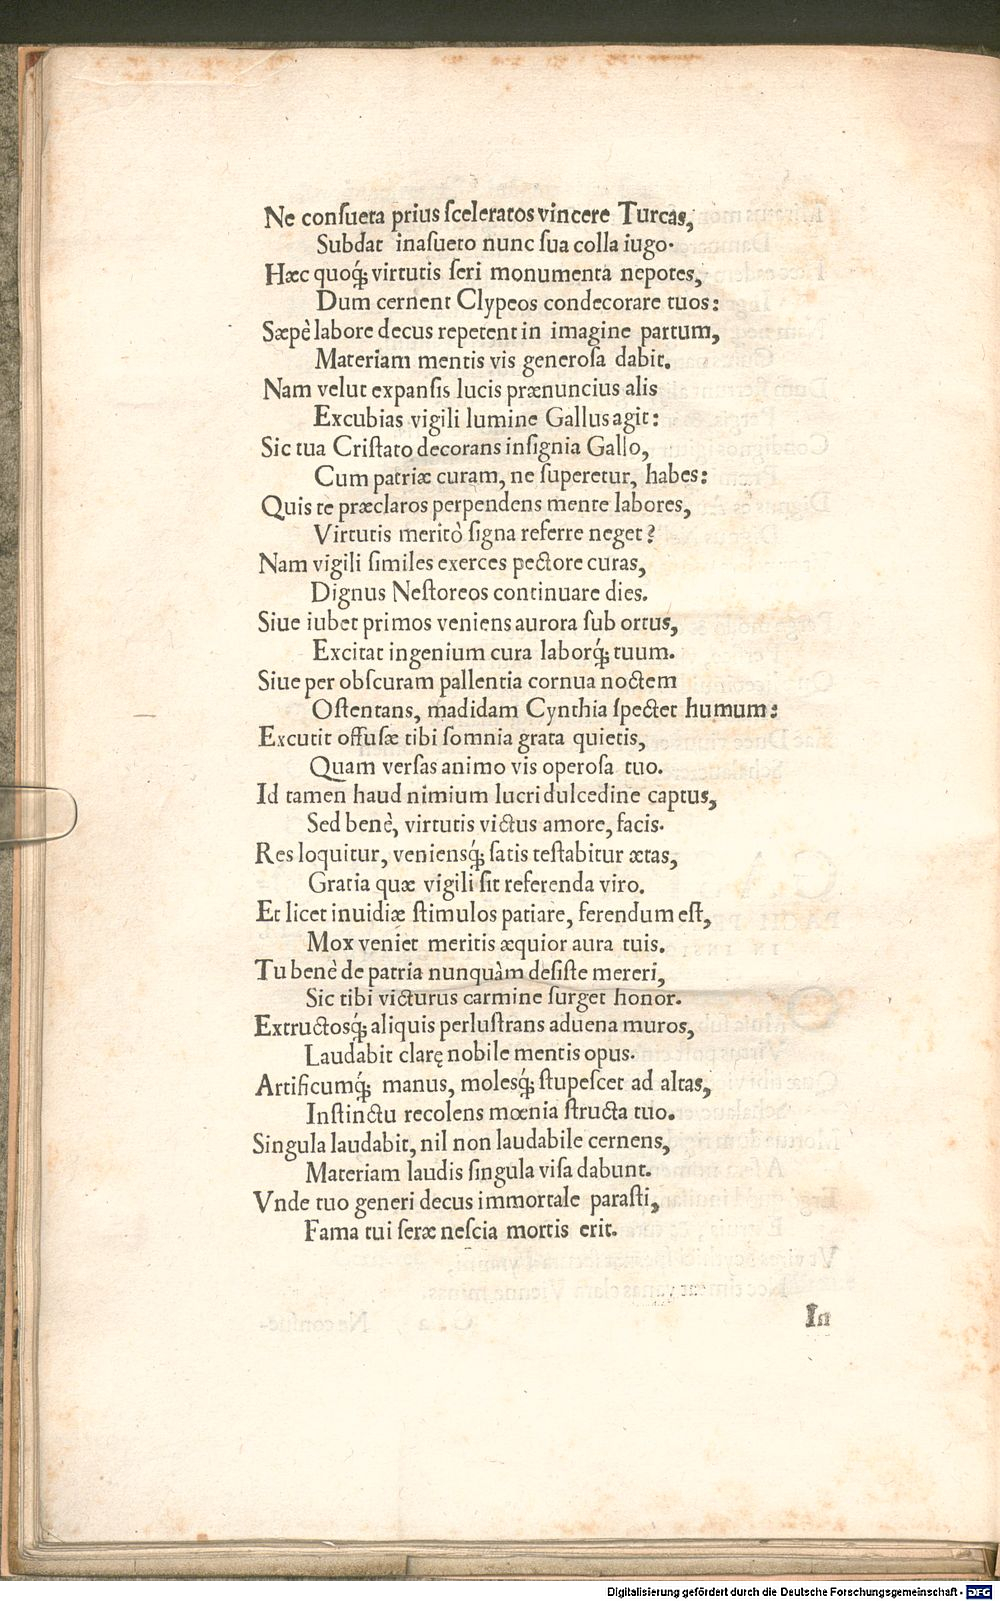 Ne conſueta prius ſceleratos vincere Turcas,
Subdat inaſueto nunc ſua colla iugo.
Hæc quoq́; virtutis ſeri monumenta nepotes,
Dum cernent Clypeos condecorare tuos:
Sæpè labore decus repetent in imagine partum,
Materiam mentis vis generoſa dabit.
Nam velut expanſis lucis prænuncius alis
Excubias vigili lumine Gallus agit:
Sic tua Criſtato decorans inſignia Gallo,
Cum patriæ curam, ne ſuperetur, habes:
Quis te præclaros perpendens mente labores,
Virtutis meritò ſigna referre neget?
Nam vigili ſimiles exerces pectore curas,
Dignus Neſtoreos continuare dies.
Siue iubet primos veniens aurora ſub ortus,
Excitat ingenium cura laborq́; tuum.
Siue per obſcuram pallentia cornua noctem
Oſtentans, madidam Cynthia ſpectet humum:
Excutit offuſæ tibi ſomnia grata quietis,
Quam verſas animo vis operoſa tuo.
Id tamen haud nimium lucri dulcedine captus,
Sed benè, virtutis victus amore, facis.
Res loquitur, veniensq́; ſatis teſtabitur ætas,
Gratia quæ vigili ſit referenda viro.
Et licet inuidiæ ſtimulos patiare, ferendum eſt,
Mox veniet meritis æquior aura tuis.
Tu benè de patria nunquàm deſiſte mereri,
Sic tibi victurus carmine ſurget honor.
Extructosq́; aliquis perluſtrans aduena muros,
Laudabit clarę nobile mentis opus.
Artificumq́; manus, molesq́; ſtupeſcet ad altas,
Inſtinctu recolens mœnia ſtructa tuo.
Singula laudabit, nil non laudabile cernens,
Materiam laudis ſingula viſa dabunt.
Vnde tuo generi decus immortale paraſti,
Fama tui ſeræ neſcia mortis erit.
In
Digitalisierung gefördert durch die Deutsche Forschungsgemeinschaft - DFG